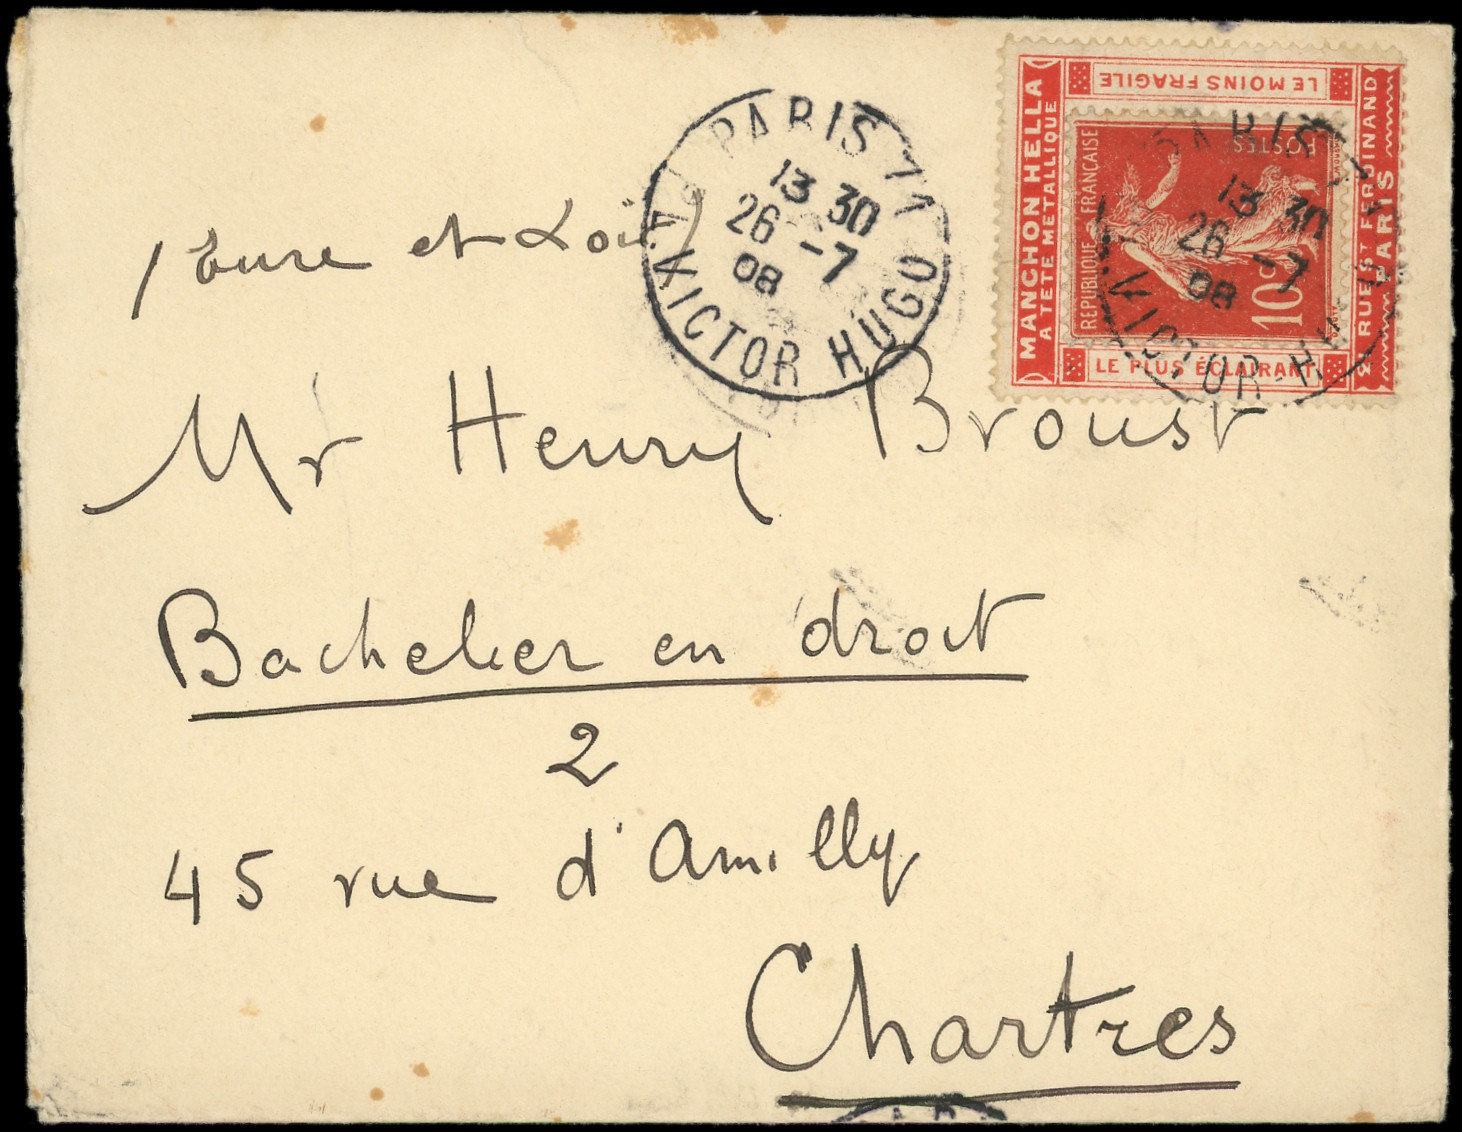 MANCHON HELLA
A TÊTE MÉTALLIQUE
LE MOINS FRAGILE
RUE ST FERDINAND
PARIS
LE PLUS ÉCLAIRANT
RÉPUBLIQUE FRANÇAISE
POSTES
10c
PARIS 71
13 30
26 -7
08
AV. VICTOR HUGO
PARIS 71
13 30
26 -7
08
AV. VICTOR-HU
(Eure et Loir)
Mr Henry Broust
Bachelier en droit
2
45 rue d'Amilly
Chartres